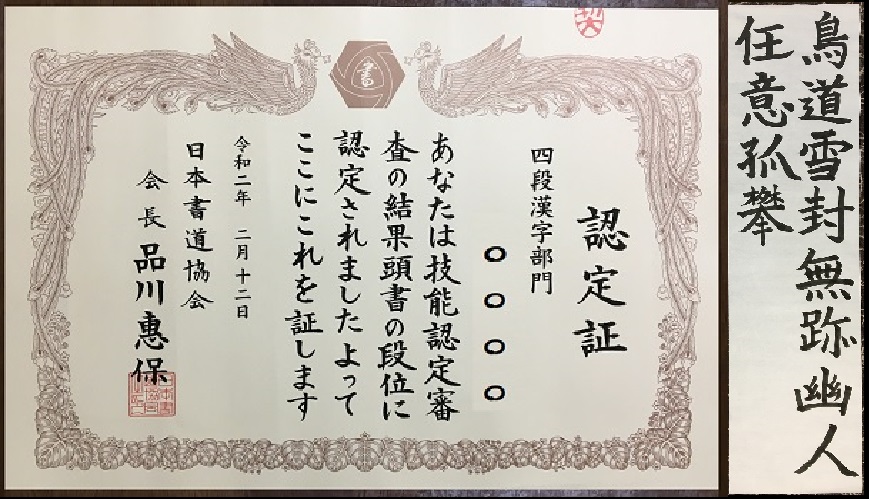 鳥道雪封無跡幽人
任意孤攀
書
認定証
四段漢字部門
○○○○
あなたは技能認定審
査の結果頭書の段位に
認定されましたよって
ここにこれを証します
令和二年 二月十二日
日本書道協会
会長 品川惠保